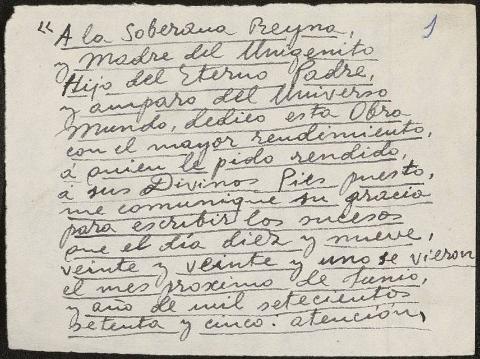 “A la Soberana Reyna,
y Madre del Unigenito
Hijo del Eterno Padre,
y amparo del Universo
Mundo, dedico esta Obra
con el mayor rendimiento,
á quien le pido rendido,
á sus Divinos Pies puesto,
me comunique su gracia
para escribir los sucesos
que el día diez y nueve,
veinte y veinte y uno se vieron
el mes proximo de Junio,
y año de mil setecientos
setenta y cinco. atención,
1